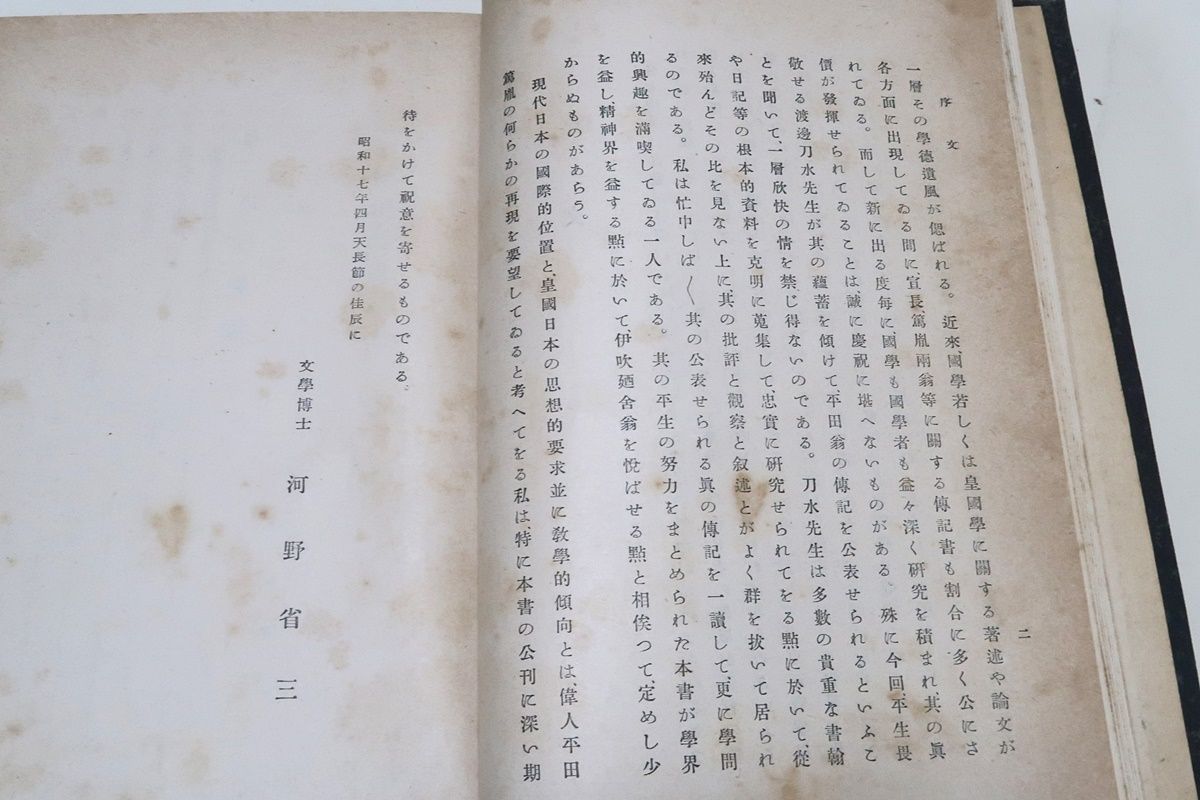 序文
二
一層その學德遺風が偲ばれる。近來、國學若しくは皇國學に關する著述や論文が
各方面に出現してゐる間に、宣長、篤胤兩翁等に關する傳記書も割合に多く公にさ
れてゐる。而して新に出る度每に、國學も國學者も益々深く硏究を積まれ、其の眞
價が發揮せられてゐることは誠に慶祝に堪へないものがある。殊に今回、平生畏
敬せる渡邊刀水先生が其の蘊蓄を傾けて、平田翁の傳記を公表せられるといふこ
とを聞いて、一層欣快の情を禁じ得ないのである。刀水先生は多數の貴重な書翰
や日記等の根本的資料を克明に蒐集して、忠實に硏究せられてをる點に於いて、從
來殆んどその比を見ない上に其の批評と觀察と叙述とがよく群を拔いて居られ
るのである。私は忙中しば〱其の公表せられる眞の傳記を一讀して、更に學問
的興趣を滿喫してゐる一人である。其の平生の努力をまとめられた本書が學界
を益し、精神界を益する點に於いて、伊吹廼舍翁を悅ばせる點と相俟つて、定めし少
からぬものがあらう。
現代日本の國際的位置と、皇國日本の思想的要求並に敎學的傾向とは、偉人平田
篤胤の何らかの再現を要望してゐると考へてをる私は、特に本書の公刊に深い期
待をかけて祝意を寄せるものである。
昭和十七年四月天長節の佳辰に
文學博士 河野省三